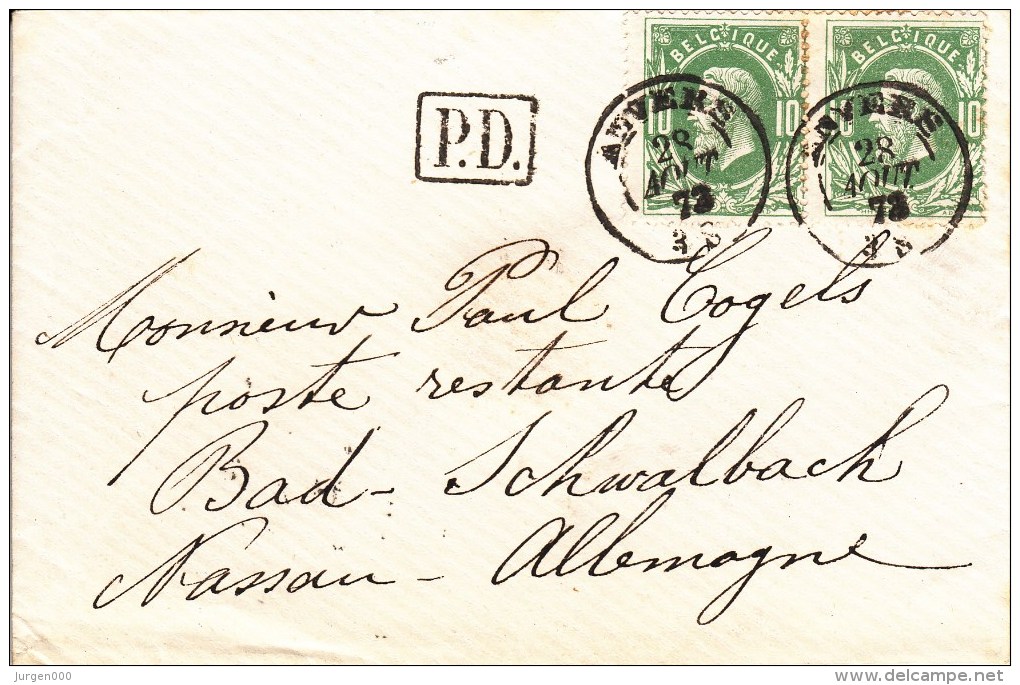 BELGIQUE BELGIQUE
10 10 10
P.D.
ANVERS ANVERS
28 28
AOUT AOUT
73 73
3 S 3 S
Monsieur Paul Cogels
poste restante
Bad-Schwalbach
Nassau - Allemagne
jurgen000
delcampe.net